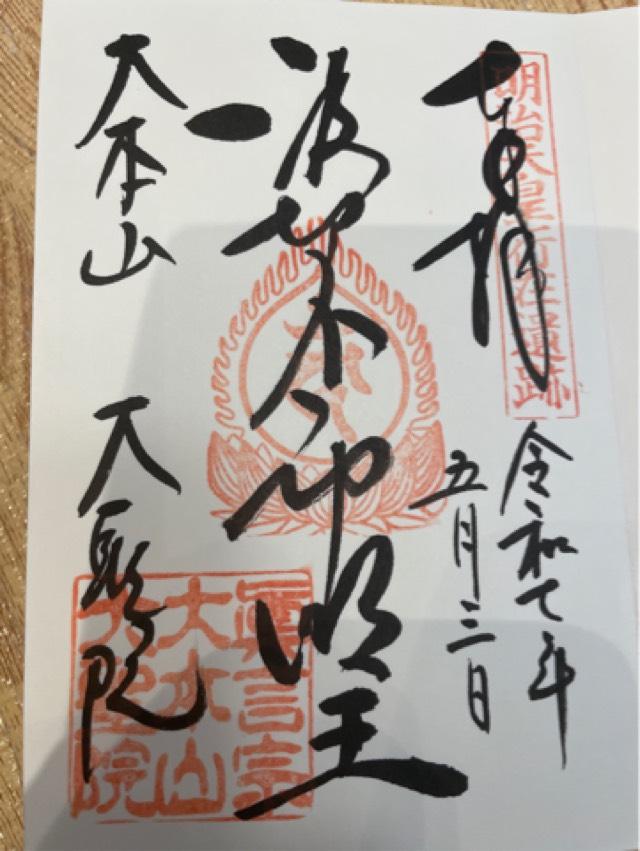 奉拝
明治天皇行在遺跡
令和七年
五月三日
波切不動明王
大本山 大聖院
眞言宗
大本山
大聖院